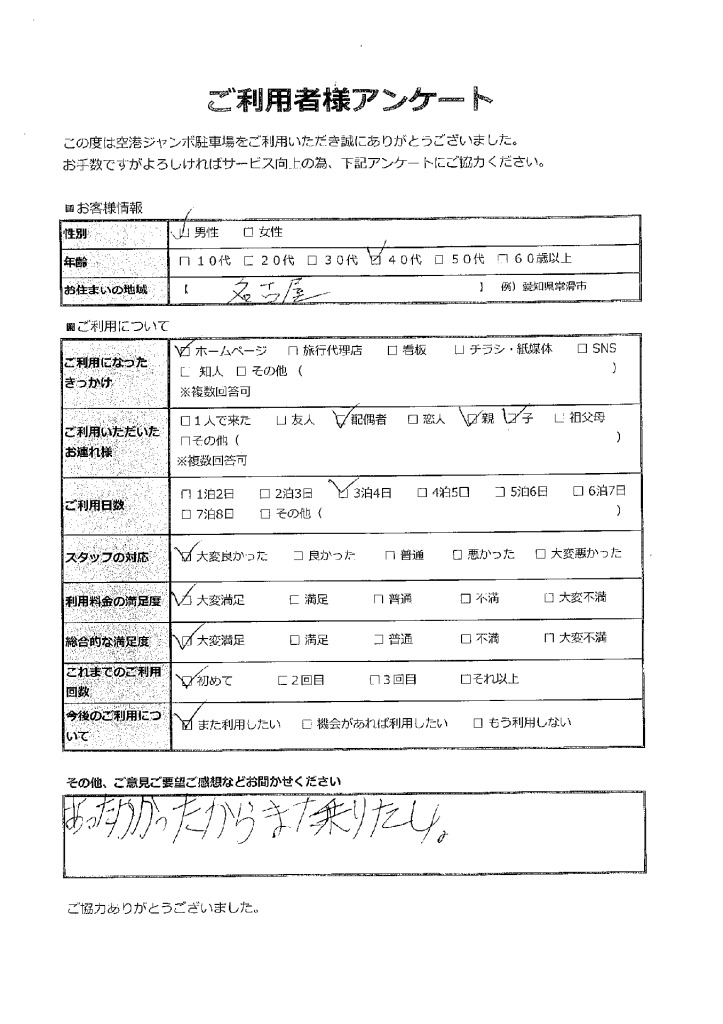 ご利用者様アンケート
この度は空港ジャンボ駐車場をご利用いただき誠にありがとうございました。
お手数ですがよろしければサービス向上の為、下記アンケートにご協力ください。
■お客様情報
性別 ☑ 男性 □ 女性
年齢 □ 10代 □ 20代 □ 30代 ☑ 40代 □ 50代 □ 60歳以上
お住まいの地域 【 名古屋 】 例）愛知県常滑市
■ご利用について
ご利用になった
きっかけ
☑ ホームページ □ 旅行代理店 □ 看板 □ チラシ・紙媒体 □ SNS
□ 知人 □ その他（ ）
※複数回答可
ご利用いただいた
お連れ様
□ 1人で来た □ 友人 ☑ 配偶者 □ 恋人 ☑ 親 ☑ 子 □ 祖父母
□その他（ ）
※複数回答可
ご利用日数
□ 1泊2日 □ 2泊3日 ☑ 3泊4日 □ 4泊5日 □ 5泊6日 □ 6泊7日
□ 7泊8日 □ その他（ ）
スタッフの対応 ☑ 大変良かった □ 良かった □ 普通 □ 悪かった □ 大変悪かった
利用料金の満足度 ☑ 大変満足 □ 満足 □ 普通 □ 不満 □ 大変不満
総合的な満足度 ☑ 大変満足 □ 満足 □ 普通 □ 不満 □ 大変不満
これまでのご利用
回数
☑ 初めて □ 2回目 □ 3回目 □それ以上
今後のご利用につ
いて
☑ また利用したい □ 機会があれば利用したい □ もう利用しない
その他、ご意見ご要望ご感想などお聞かせください
あったかかったからまた乗りたい。
ご協力ありがとうございました。